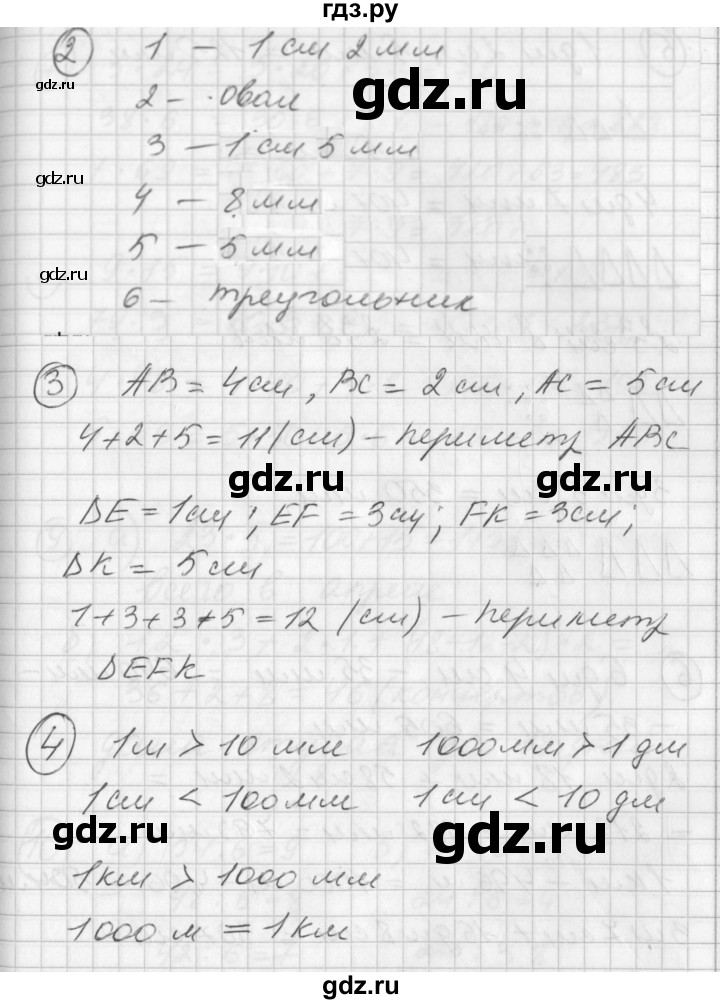 гдз.ру
② 1 – 1 см 2 мм
gdz.ru
2 – овал
gdz.ru
3 – 1 см 5 мм
gdz.ru
4 – 8 мм
5 – 5 мм
gdz.ru
6 – треугольник
③ AB = 4 см, BC = 2 см, AC = 5 см
4+2+5 = 11 (см) – периметр ABC
gdz.ru
gdz.ru
DE = 1 см; EF = 3 см; FK = 3 см;
DK = 5 см
1+3+3+5 = 12 (см) – периметр
DEFK
④ 1 м > 10 мм 1000 мм > 1 дм
1 см < 100 мм 1 см < 10 дм
gdz.ru
gdz.ru
1 км > 1000 мм
1000 м = 1 км
gdz.ru